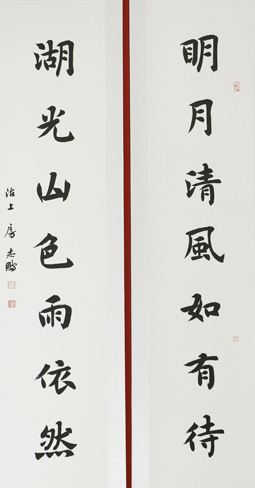 明月清風如有待
湖光山色雨依然
治上房志鵬